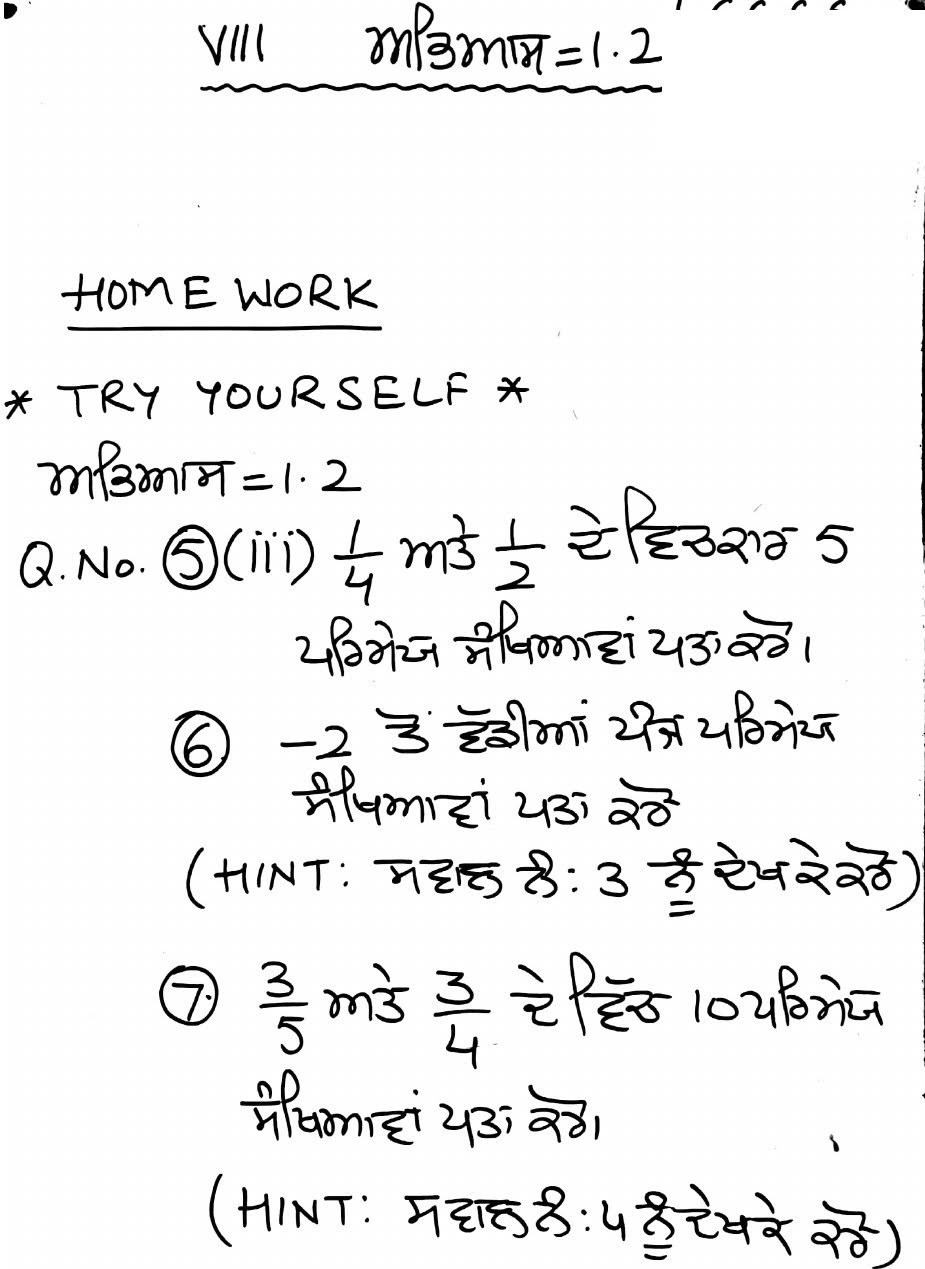 VIII ਅਭਿਆਸ = 1.2
HOME WORK
* TRY YOURSELF *
ਅਭਿਆਸ = 1.2
Q. No. ⑤ (iii) 1/4 ਅਤੇ 1/2 ਦੇ ਵਿਚਕਾਰ 5
ਪਰਿਮੇਯ ਸੰਖਿਆਵਾਂ ਪਤਾ ਕਰੋ।
⑥ -2 ਤੋਂ ਵੱਡੀਆਂ ਪੰਜ ਪਰਿਮੇਯ
ਸੰਖਿਆਵਾਂ ਪਤਾ ਕਰੋ
(HINT: ਸਵਾਲ ਨੰ: 3 ਨੂੰ ਦੇਖ ਕੇ ਕਰੋ)
⑦ 3/5 ਅਤੇ 3/4 ਦੇ ਵਿੱਚ 10 ਪਰਿਮੇਯ
ਸੰਖਿਆਵਾਂ ਪਤਾ ਕਰੋ।
(HINT: ਸਵਾਲ ਨੰ: 4 ਨੂੰ ਦੇਖ ਕੇ ਕਰੋ)